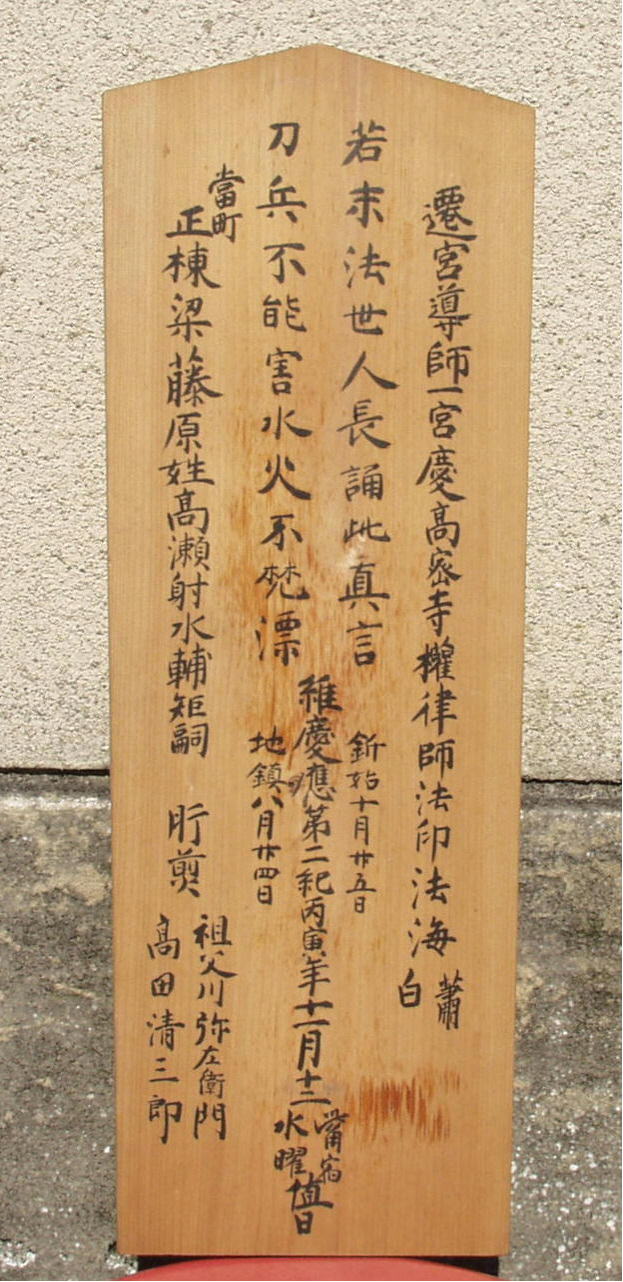 遷宮導師一宮慶高密寺権律師法印法海
蕭
白
若末法世人長誦此真言
刀兵不能害水火不焚漂
釿始十月廿五日
維慶應第二紀丙寅年十一月十二
地鎮八月廿四日
宿
水曜
值日
當町
正棟梁藤原姓高瀬射水輔矩嗣
肝煎
祖父川弥左衛門
高田清三郎